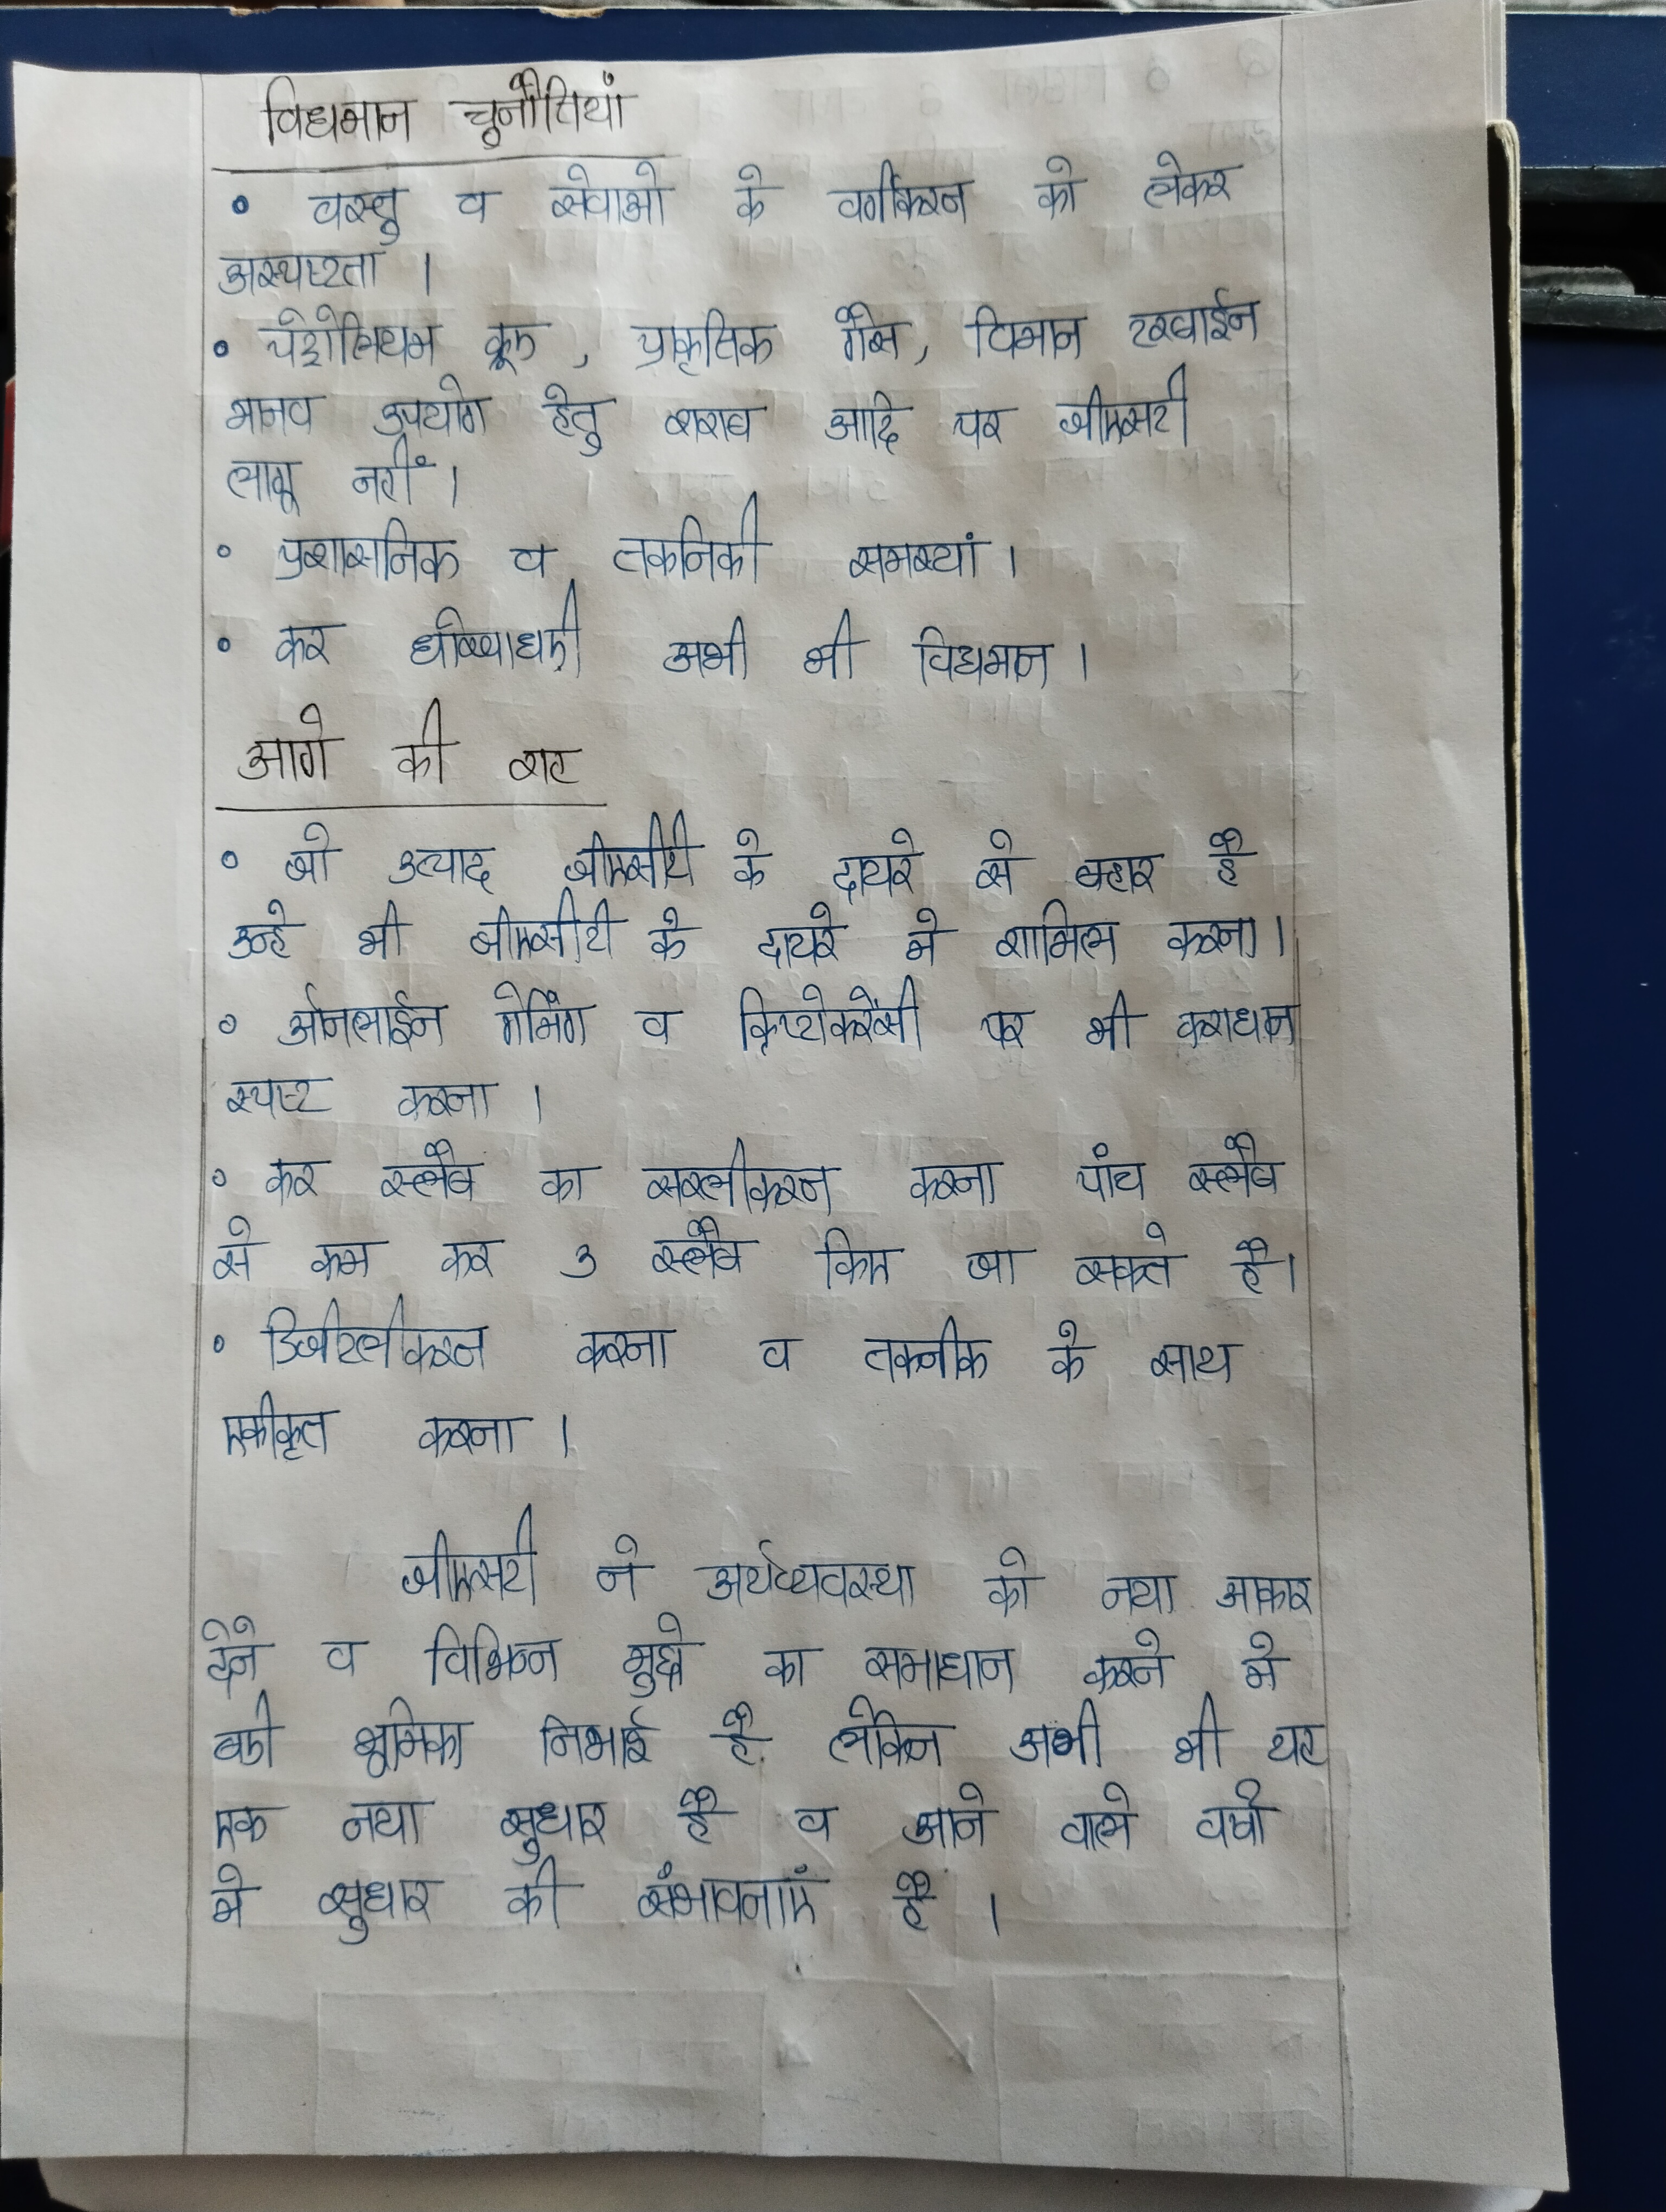 विद्यमान चुनौतियां
• वस्तु व सेवाओ के वर्गीकरन को लेकर
अस्पष्टता ।
• पेट्रोलियम क्रूड , प्राकृतिक गैस, विमान टरबाईन
मानव उपयोग हेतु शराब आदि पर जीएसटी
लागू नहीं ।
• प्रशासनिक व तकनिकी समस्यां ।
• कर धोखाधड़ी अभी भी विद्यमान ।
आगे की राह
• जो उत्पाद जीएसीटी के दायरे से बहार है
उन्हे भी जीएसीटी के दायरे मे शामिल करना ।
• ऑनलाईन गेमिंग व क्रिप्टोकरेंसी पर भी कराधान
स्पष्ट करना ।
• कर स्लैब का सरलीकरन करना पांच स्लैब
से कम कर 3 स्लैब किए जा सकते है।
• डिजीटलीकरन करना व तकनीक के साथ
एकीकृत करना ।
जीएसटी ने अर्थव्यवस्था को नया आकार
देने व विभिन्न मुद्दो का समाधान करने मे
बड़ी भूमिका निभाई है लेकिन अभी भी यह
एक नया सुधार है व आने वाले वर्षो
मे सुधार की संभावनाएं है ।